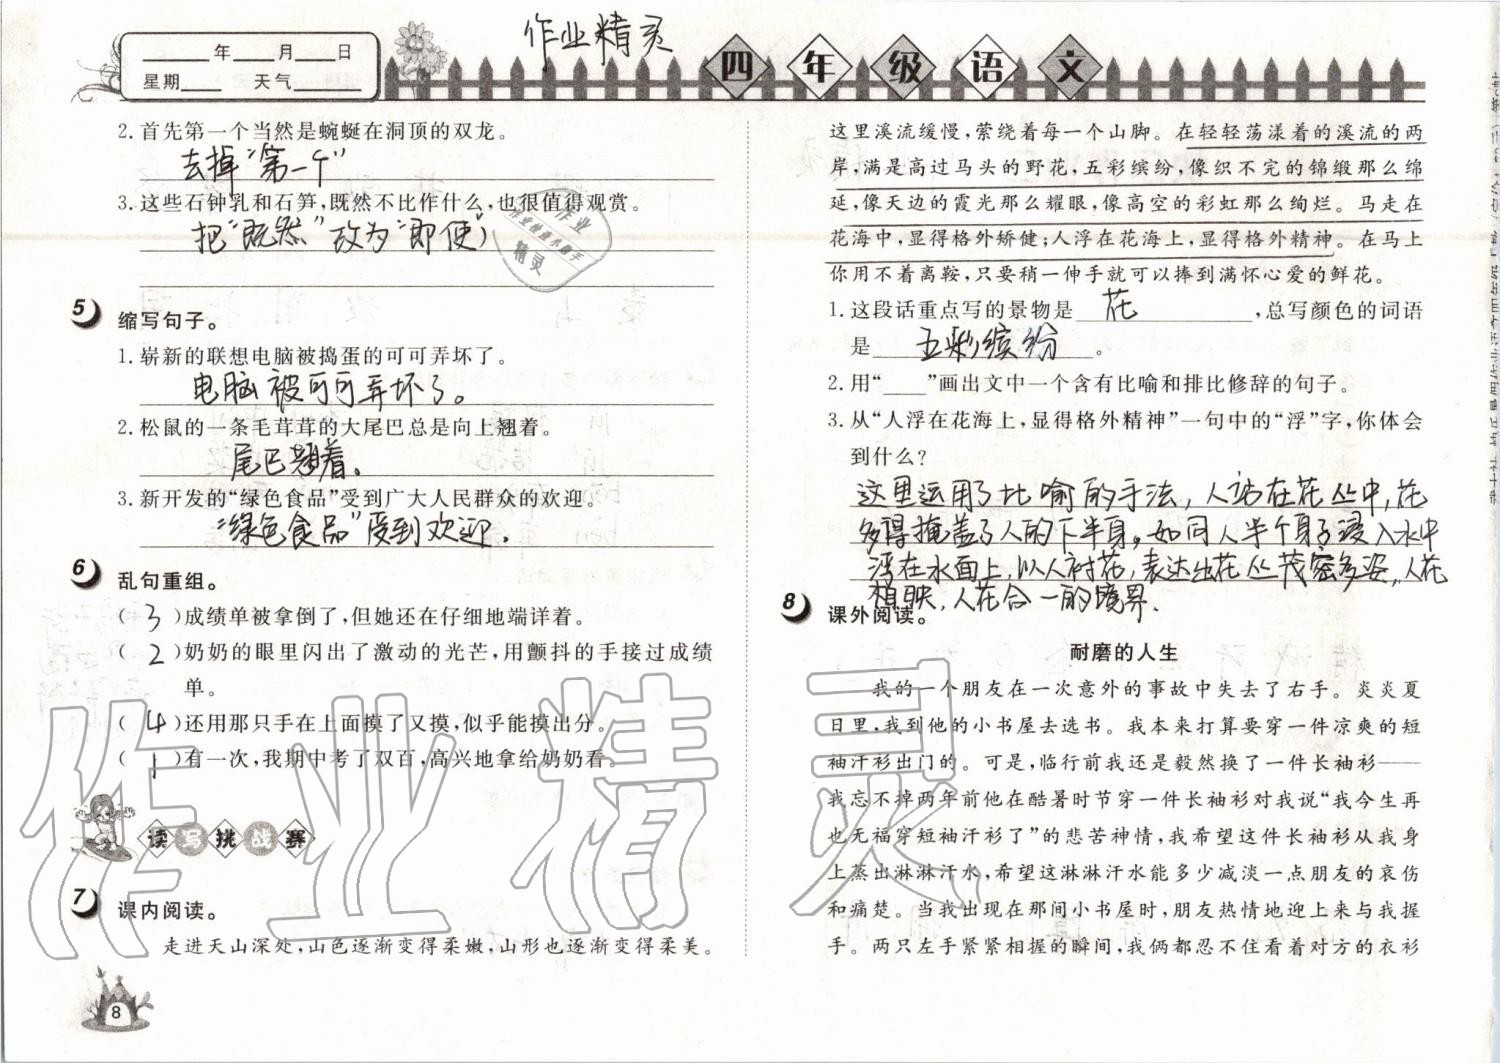 作业精灵
____年____月____日
星期____ 天气________
四年级语文
2.首先第一个当然是蜿蜒在洞顶的双龙。
去掉“第一个”
3.这些石钟乳和石笋,既然不比作什么,也很值得观赏。
把“既然”改为“即使”
5 缩写句子。
1.崭新的联想电脑被捣蛋的可可弄坏了。
电脑被可可弄坏了。
2.松鼠的一条毛茸茸的大尾巴总是向上翘着。
尾巴翘着。
3.新开发的“绿色食品”受到广大人民群众的欢迎。
“绿色食品”受到欢迎。
6 乱句重组。
( 3 )成绩单被拿倒了,但她还在仔细地端详着。
( 2 )奶奶的眼里闪出了激动的光芒,用颤抖的手接过成绩
单。
( 4 )还用那只手在上面摸了又摸,似乎能摸出分。
( 1 )有一次,我期中考了双百,高兴地拿给奶奶看。
读写挑战赛
7 课内阅读。
走进天山深处,山色逐渐变得柔嫩,山形也逐渐变得柔美。
8
这里溪流缓慢,萦绕着每一个山脚。在轻轻荡漾着的溪流的两
岸,满是高过马头的野花,五彩缤纷,像织不完的锦缎那么绵
延,像天边的霞光那么耀眼,像高空的彩虹那么绚烂。马走在
花海中,显得格外矫健;人浮在花海上,显得格外精神。在马上
你用不着离鞍,只要稍一伸手就可以捧到满怀心爱的鲜花。
1.这段话重点写的景物是 花 ,总写颜色的词语
是 五彩缤纷 。
2.用“____”画出文中一个含有比喻和排比修辞的句子。
3.从“人浮在花海上,显得格外精神”一句中的“浮”字,你体会
到什么?
这里运用了比喻的手法,人站在花丛中,花
多得掩盖了人的下半身,如同人半个身子浸入水中
浮在水面上,以人衬花,表达出花丛茂密多姿,人花
相映,人花合一的境界.
8 课外阅读。
耐磨的人生
我的一个朋友在一次意外的事故中失去了右手。炎炎夏
日里,我到他的小书屋去选书。我本来打算要穿一件凉爽的短
袖汗衫出门的。可是,临行前我还是毅然换了一件长袖衫——
我忘不掉两年前他在酷暑时节穿一件长袖衫对我说“我今生再
也无福穿短袖汗衫了”的悲苦神情,我希望这件长袖衫从我身
上蒸出淋淋汗水,希望这淋淋汗水能多少减淡一点朋友的哀伤
和痛楚。当我出现在那间小书屋时,朋友热情地迎上来与我握
手。两只左手紧紧相握的瞬间,我俩都忍不住看着对方的衣衫
作业精灵